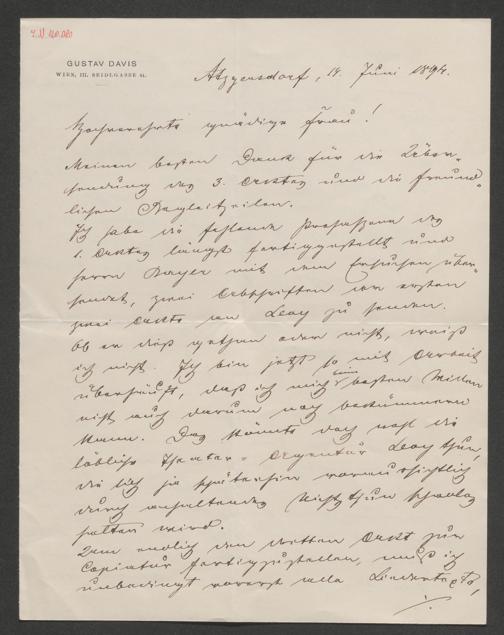 GUSTAV DAVIS
WIEN, III. SEIDLGASSE
Atzgersdorf, 14. Juni 1894.
Hochverehrte gnädige Frau!
Meinen besten Dank für die Über-
sendung des 3. Actes und die freund-
lichen Begleitzeilen.
Ich habe die fehlende Prosaszene des
1. Actes längst fertiggestellt und
Herrn Bayer mit dem Ersuchen über-
sendet, zwei Abschriften der ersten
zwei Acte an Leay zu senden.
Ob er dieß gethan oder nicht, weiß
ich nicht. Ich bin jetzt so mit Arbeit
überhäuft, daß ich mich beim besten Willen
nicht auch darum noch bekümmern
kann. Das könnte doch wohl die
löbliche Theater-Agentur thun,
die sich ja späterhin voraussichtlich
durch anhaltendes Nichtsthun schadlos
halten wird.
Um endlich den dritten Act zur
Copiatur fertigzustellen, muß ich
unbedingt vorerst alle Liedertexte,